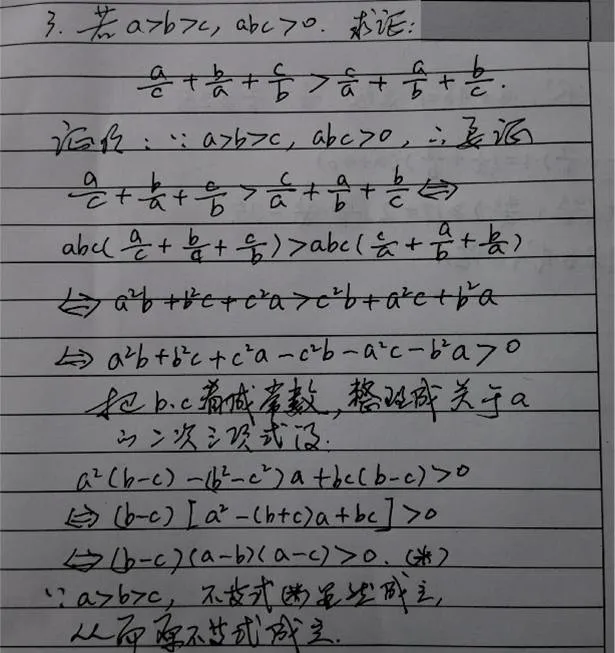 3. 若 a>b>c, abc>0. 求证:
a/c + b/a + c/b > c/a + a/b + b/c.
证明: ∵ a>b>c, abc>0, ∴ 要证
a/c + b/a + c/b > c/a + a/b + b/c ⇔
abc(a/c + b/a + c/b) > abc(c/a + a/b + b/a)
⇔ a²b + b²c + c²a > c²b + a²c + b²a
⇔ a²b + b²c + c²a - c²b - a²c - b²a > 0
把 b.c 看成常数, 整理成关于 a
的二次三项式得.
a²(b-c) - (b²-c²)a + bc(b-c) > 0
⇔ (b-c)[a² - (b+c)a + bc] > 0
⇔ (b-c)(a-b)(a-c) > 0. (*)
∵ a>b>c, 不等式(*)显然成立,
从而原不等式成立.